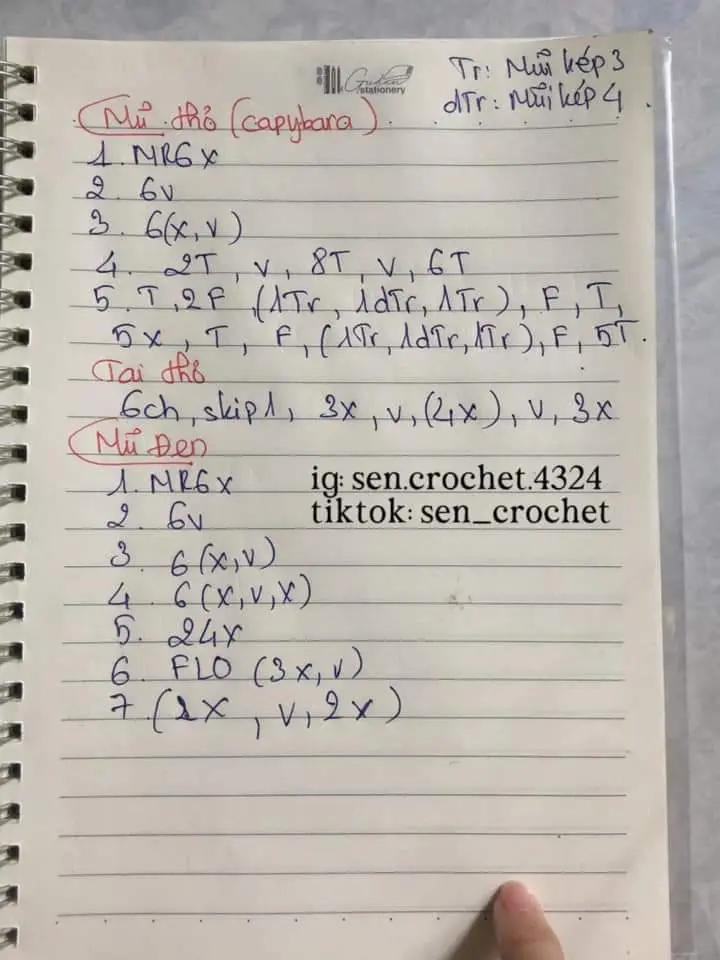 Tr: Mũi kép 3
stationery
dTr: Mũi kép 4
Mũ thỏ (capybara)
1. MR6x
2. 6v
3. 6(x,v)
4. 2T, v, 8T, v, 6T
5. T, 2F, (1Tr, 1dTr, 1Tr), F, T,
5x, T, F, (1Tr, 1dTr, 1Tr), F, 5T.
Tai thỏ
6ch, skip 1, 3x, v, (4x), v, 3x
Mũ Đen
1. MR6x
2. 6v
3. 6(x,v)
4. 6(x,v,x)
5. 24x
6. FLO (3x, v)
7. (2x, v, 2x)
ig: sen.crochet.4324
tiktok: sen_crochet